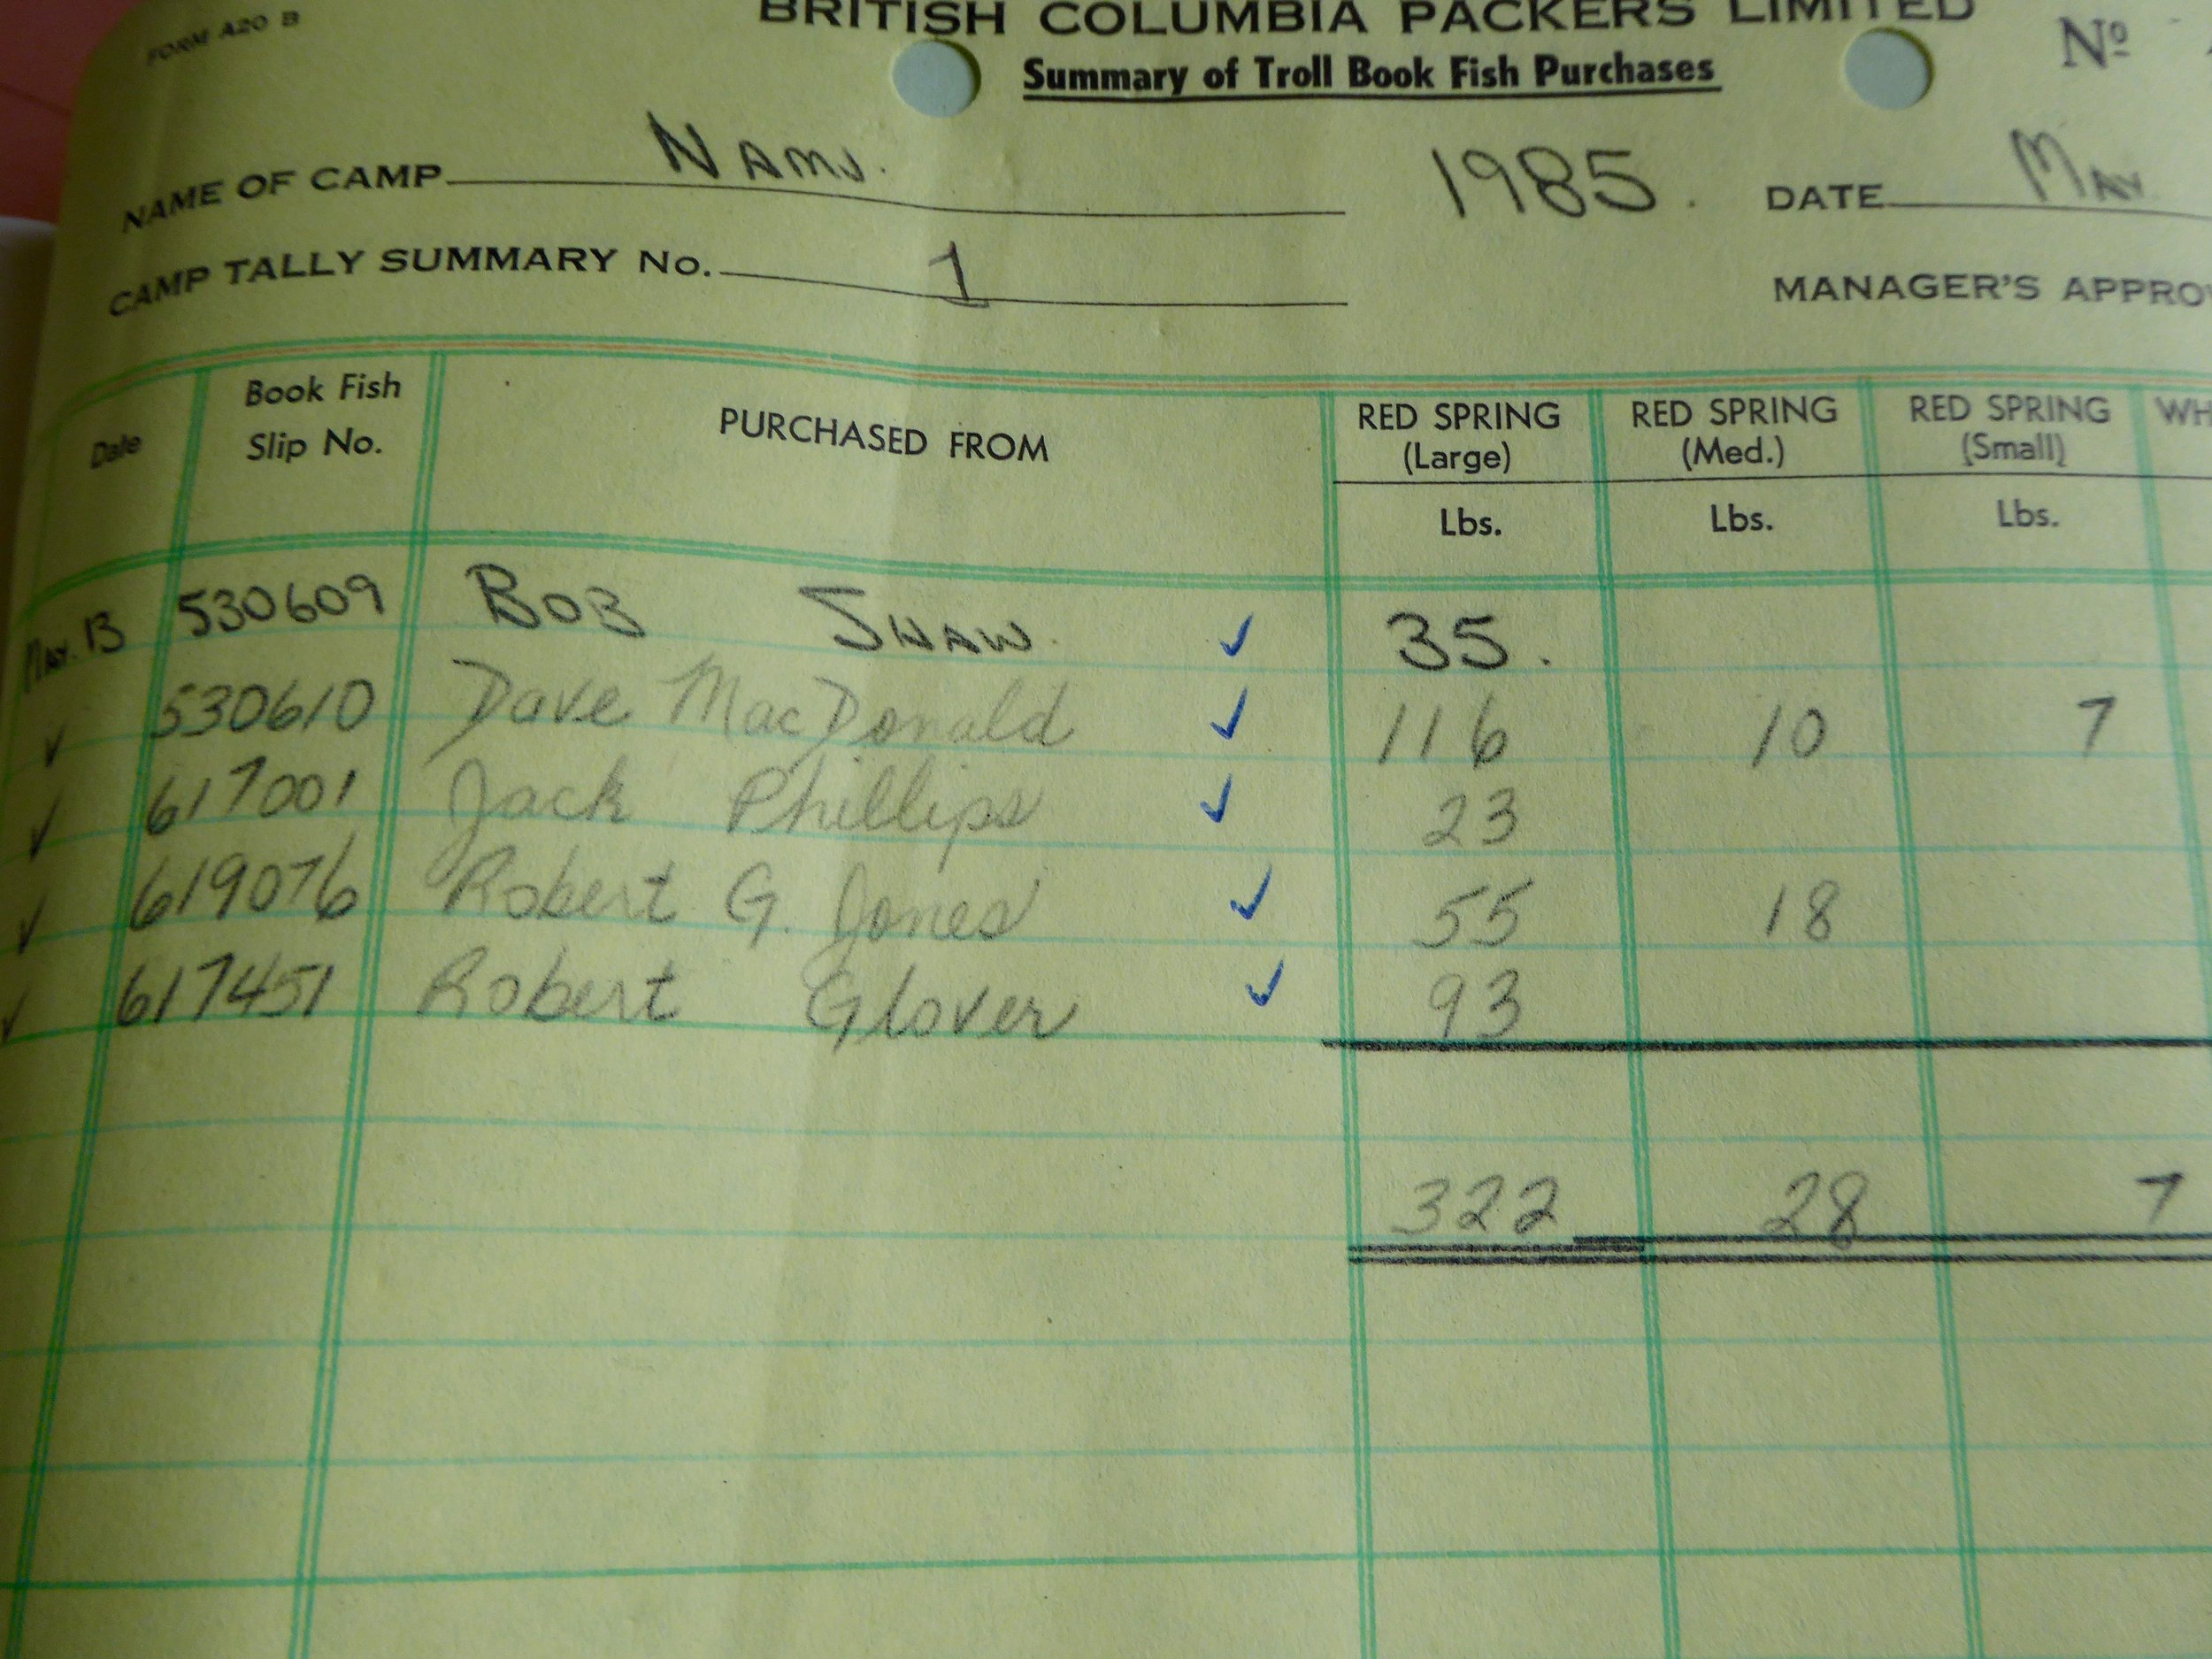 FORM A20 B
BRITISH COLUMBIA PACKERS LIMITED
Summary of Troll Book Fish Purchases
Nº
NAME OF CAMP NAMU. 1985. DATE MAY
CAMP TALLY SUMMARY No. 1
MANAGER'S
Date Book Fish Slip No. PURCHASED FROM RED SPRING (Large) Lbs. RED SPRING (Med.) Lbs. RED SPRING (Small) Lbs.
MAY. 13 530609 BOB SHAW. ✓ 35.
✓ 530610 Dave MacDonald ✓ 116 10 7
✓ 617001 Jack Phillips ✓ 23
✓ 619076 Robert G. Jones ✓ 55 18
✓ 617451 Robert Glover ✓ 93
322 28 7